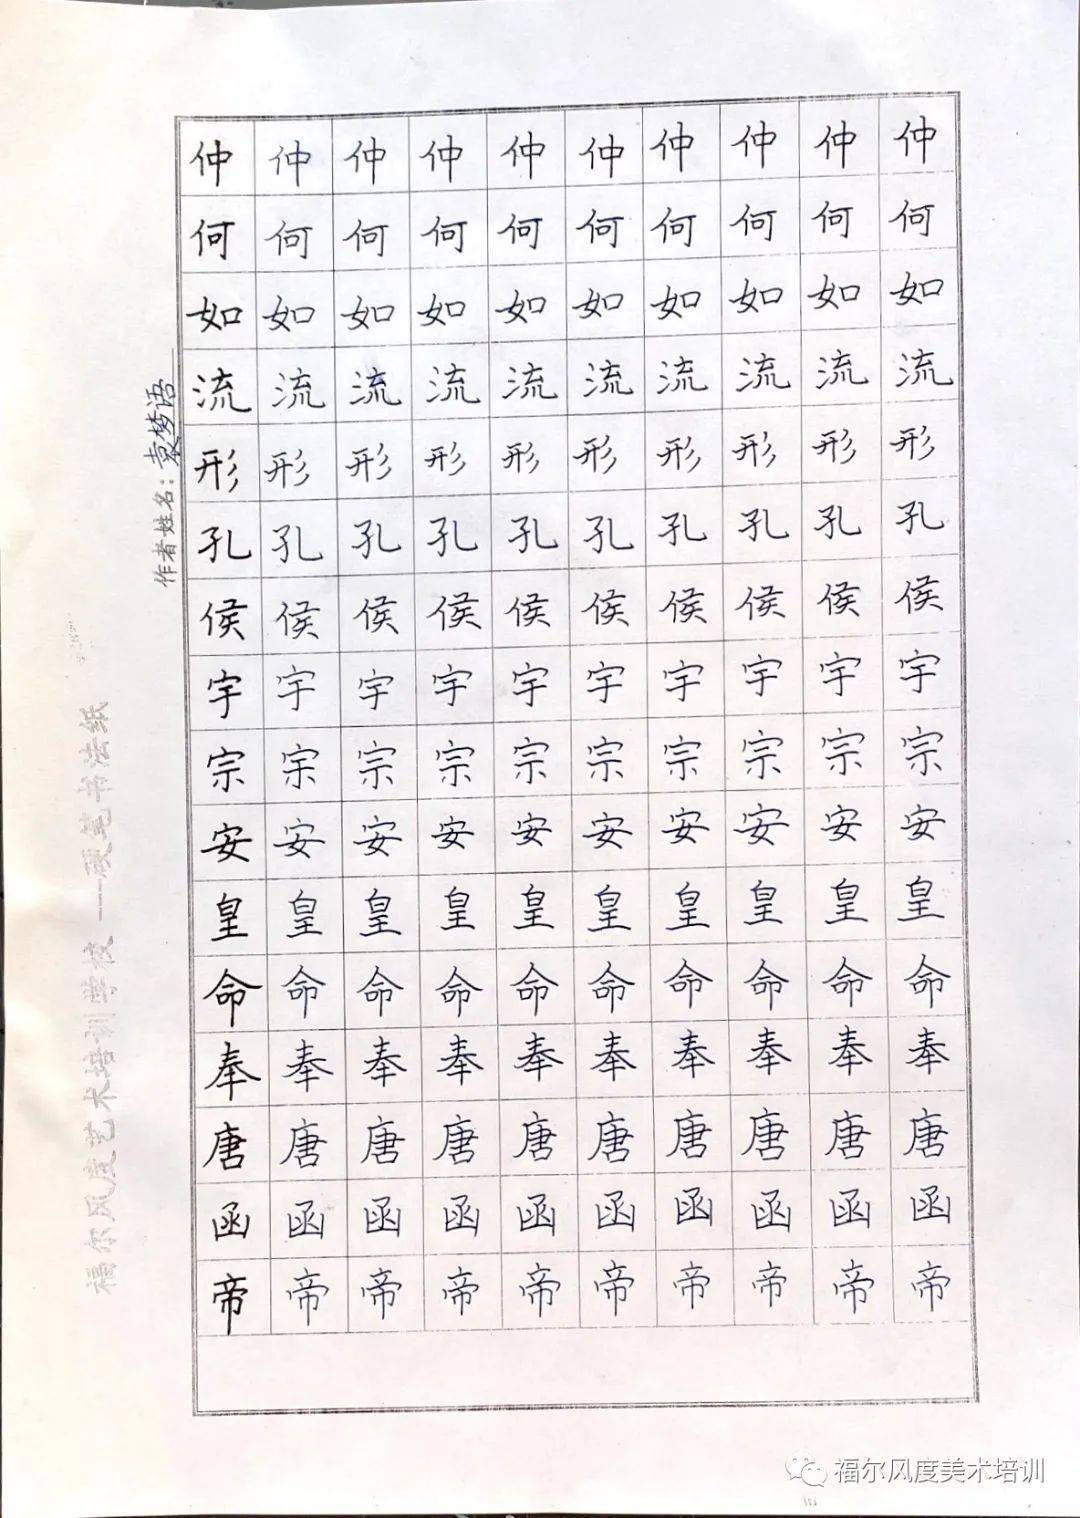 仲仲仲仲仲仲仲仲仲仲
何何何何何何何何何何
如如如如如如如如如如
流流流流流流流流流流
形形形形形形形形形形
孔孔孔孔孔孔孔孔孔孔
侯侯侯侯侯侯侯侯侯侯
宇宇宇宇宇宇宇宇宇宇
宗宗宗宗宗宗宗宗宗宗
安安安安安安安安安安
皇皇皇皇皇皇皇皇皇皇
命命命命命命命命命命
奉奉奉奉奉奉奉奉奉奉
唐唐唐唐唐唐唐唐唐唐
函函函函函函函函函函
帝帝帝帝帝帝帝帝帝帝
作者姓名：袁梦语
福尔风度艺术培训学校——硬笔书法纸
福尔风度美术培训